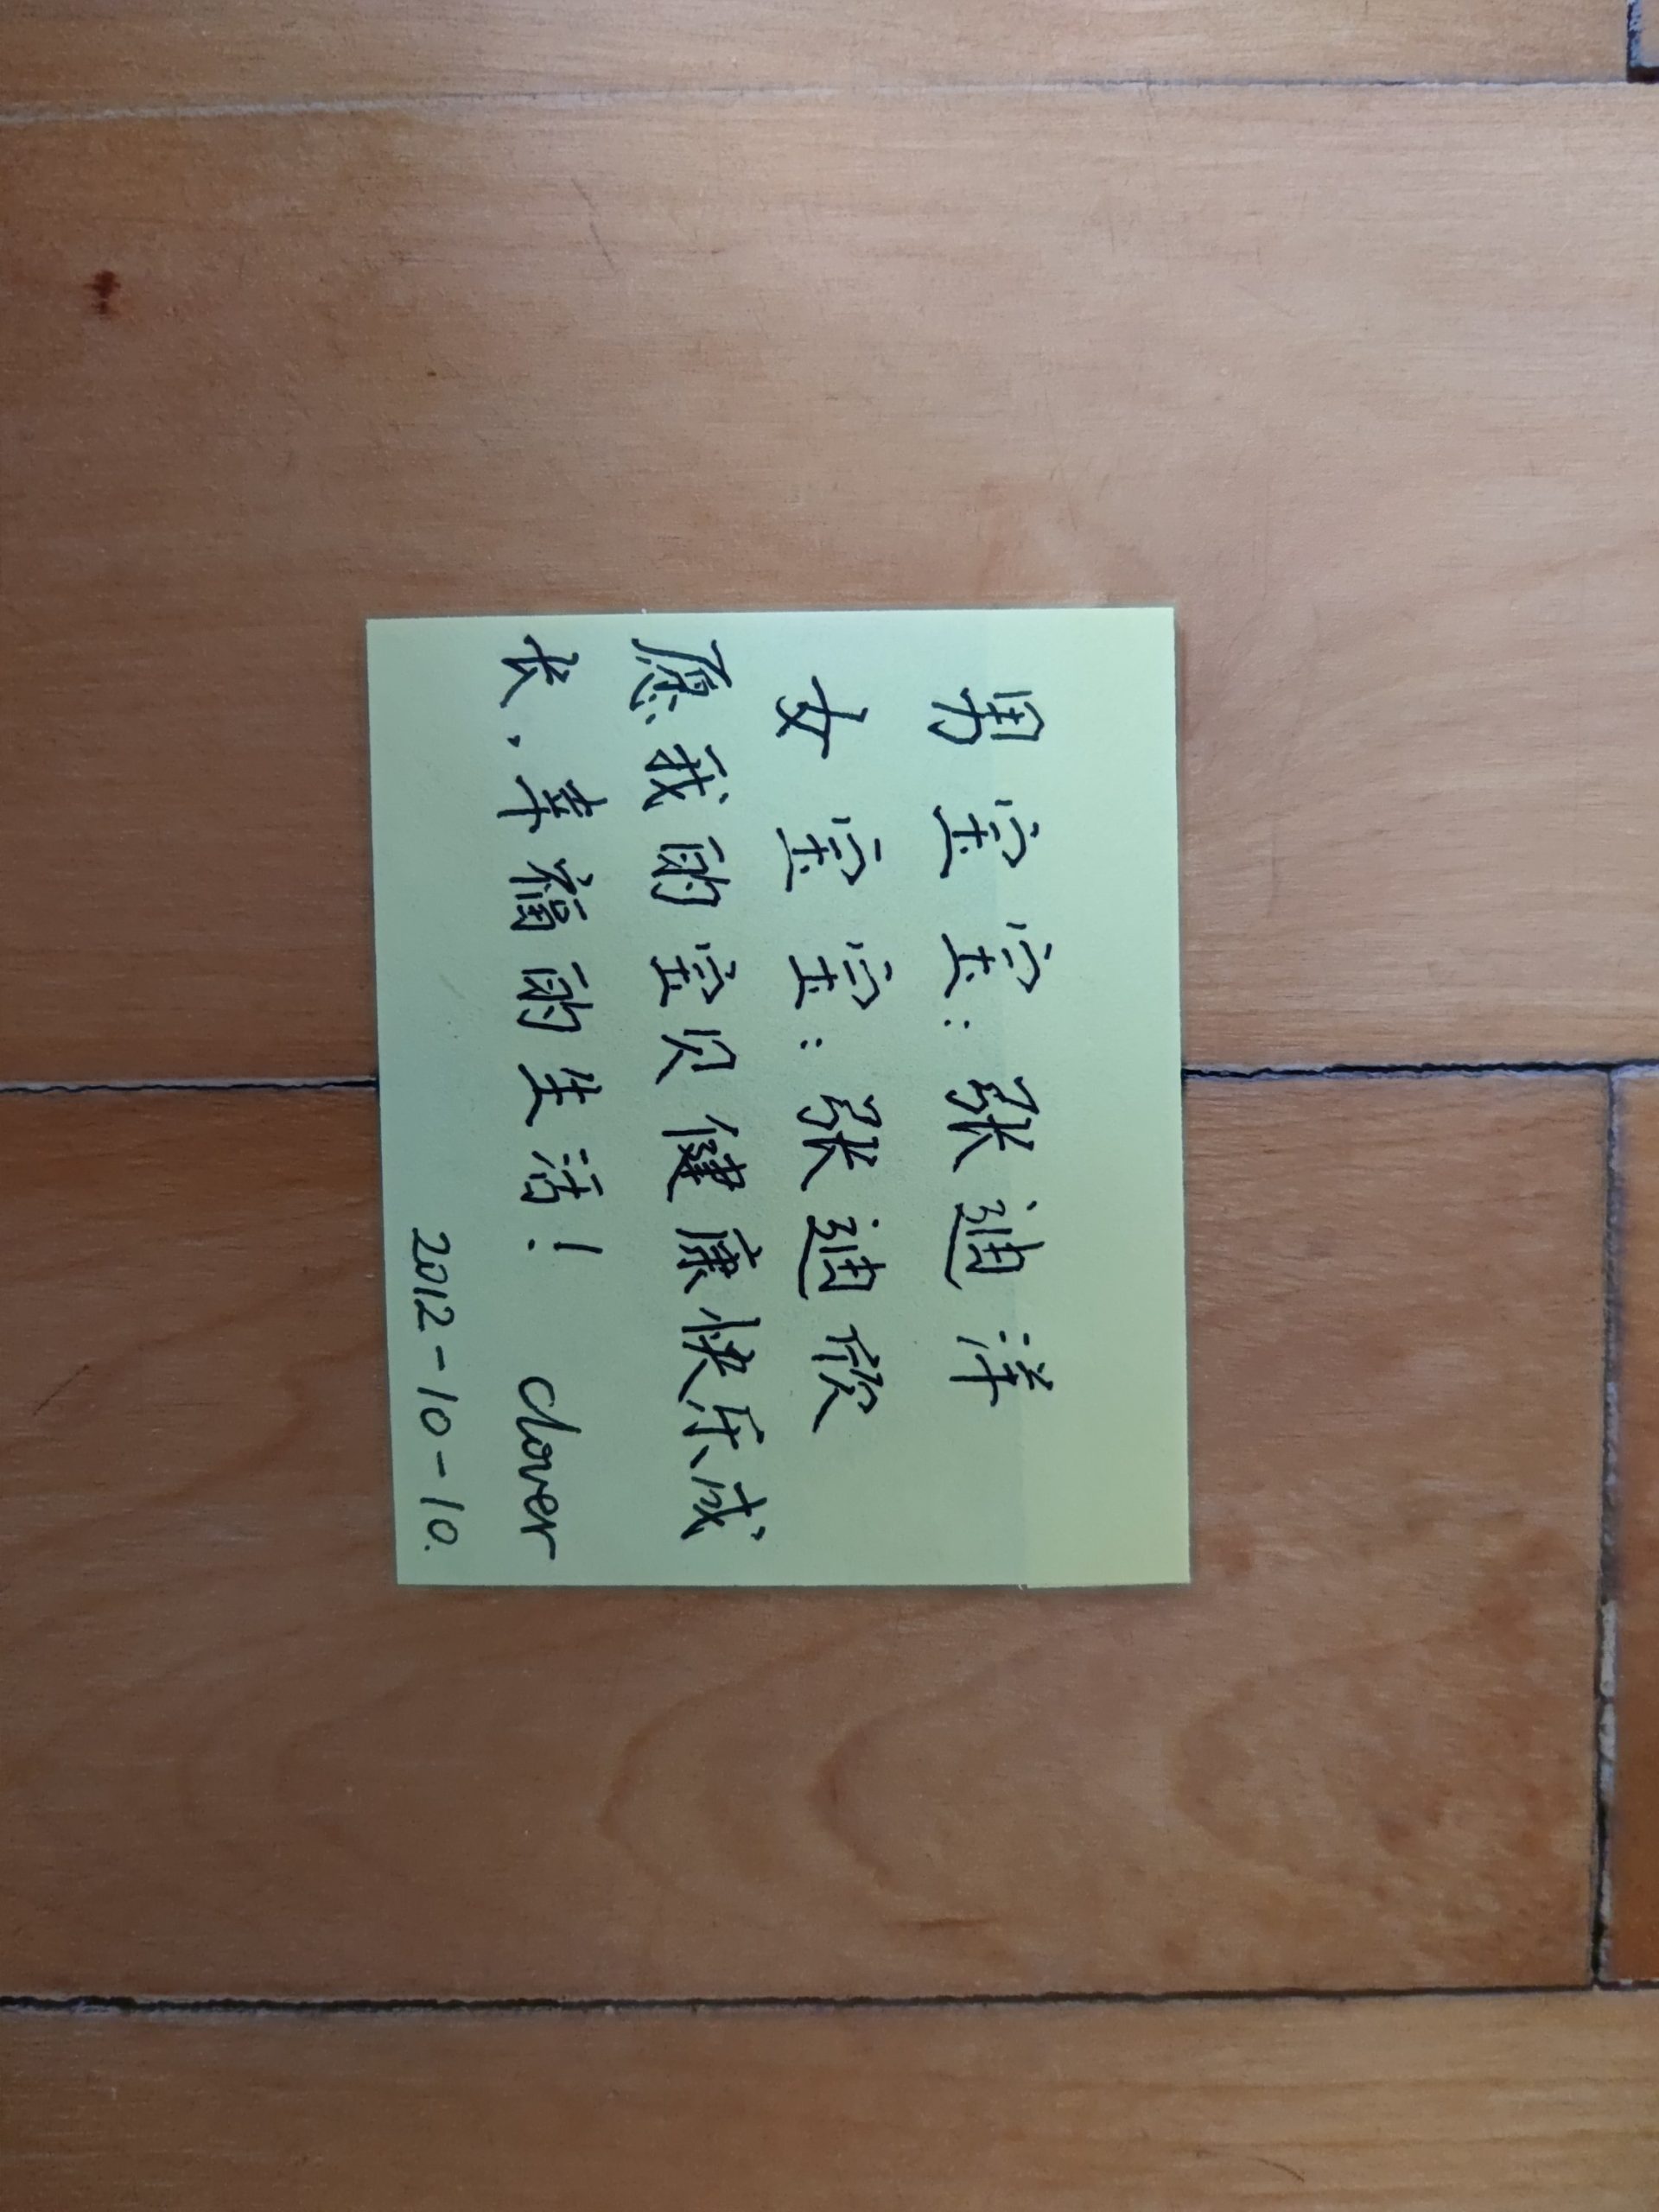 男宝宝:张迪洋
女宝宝:张迪欣
愿我的宝贝健康快乐成
长,幸福的生活! clover
2012-10-10.